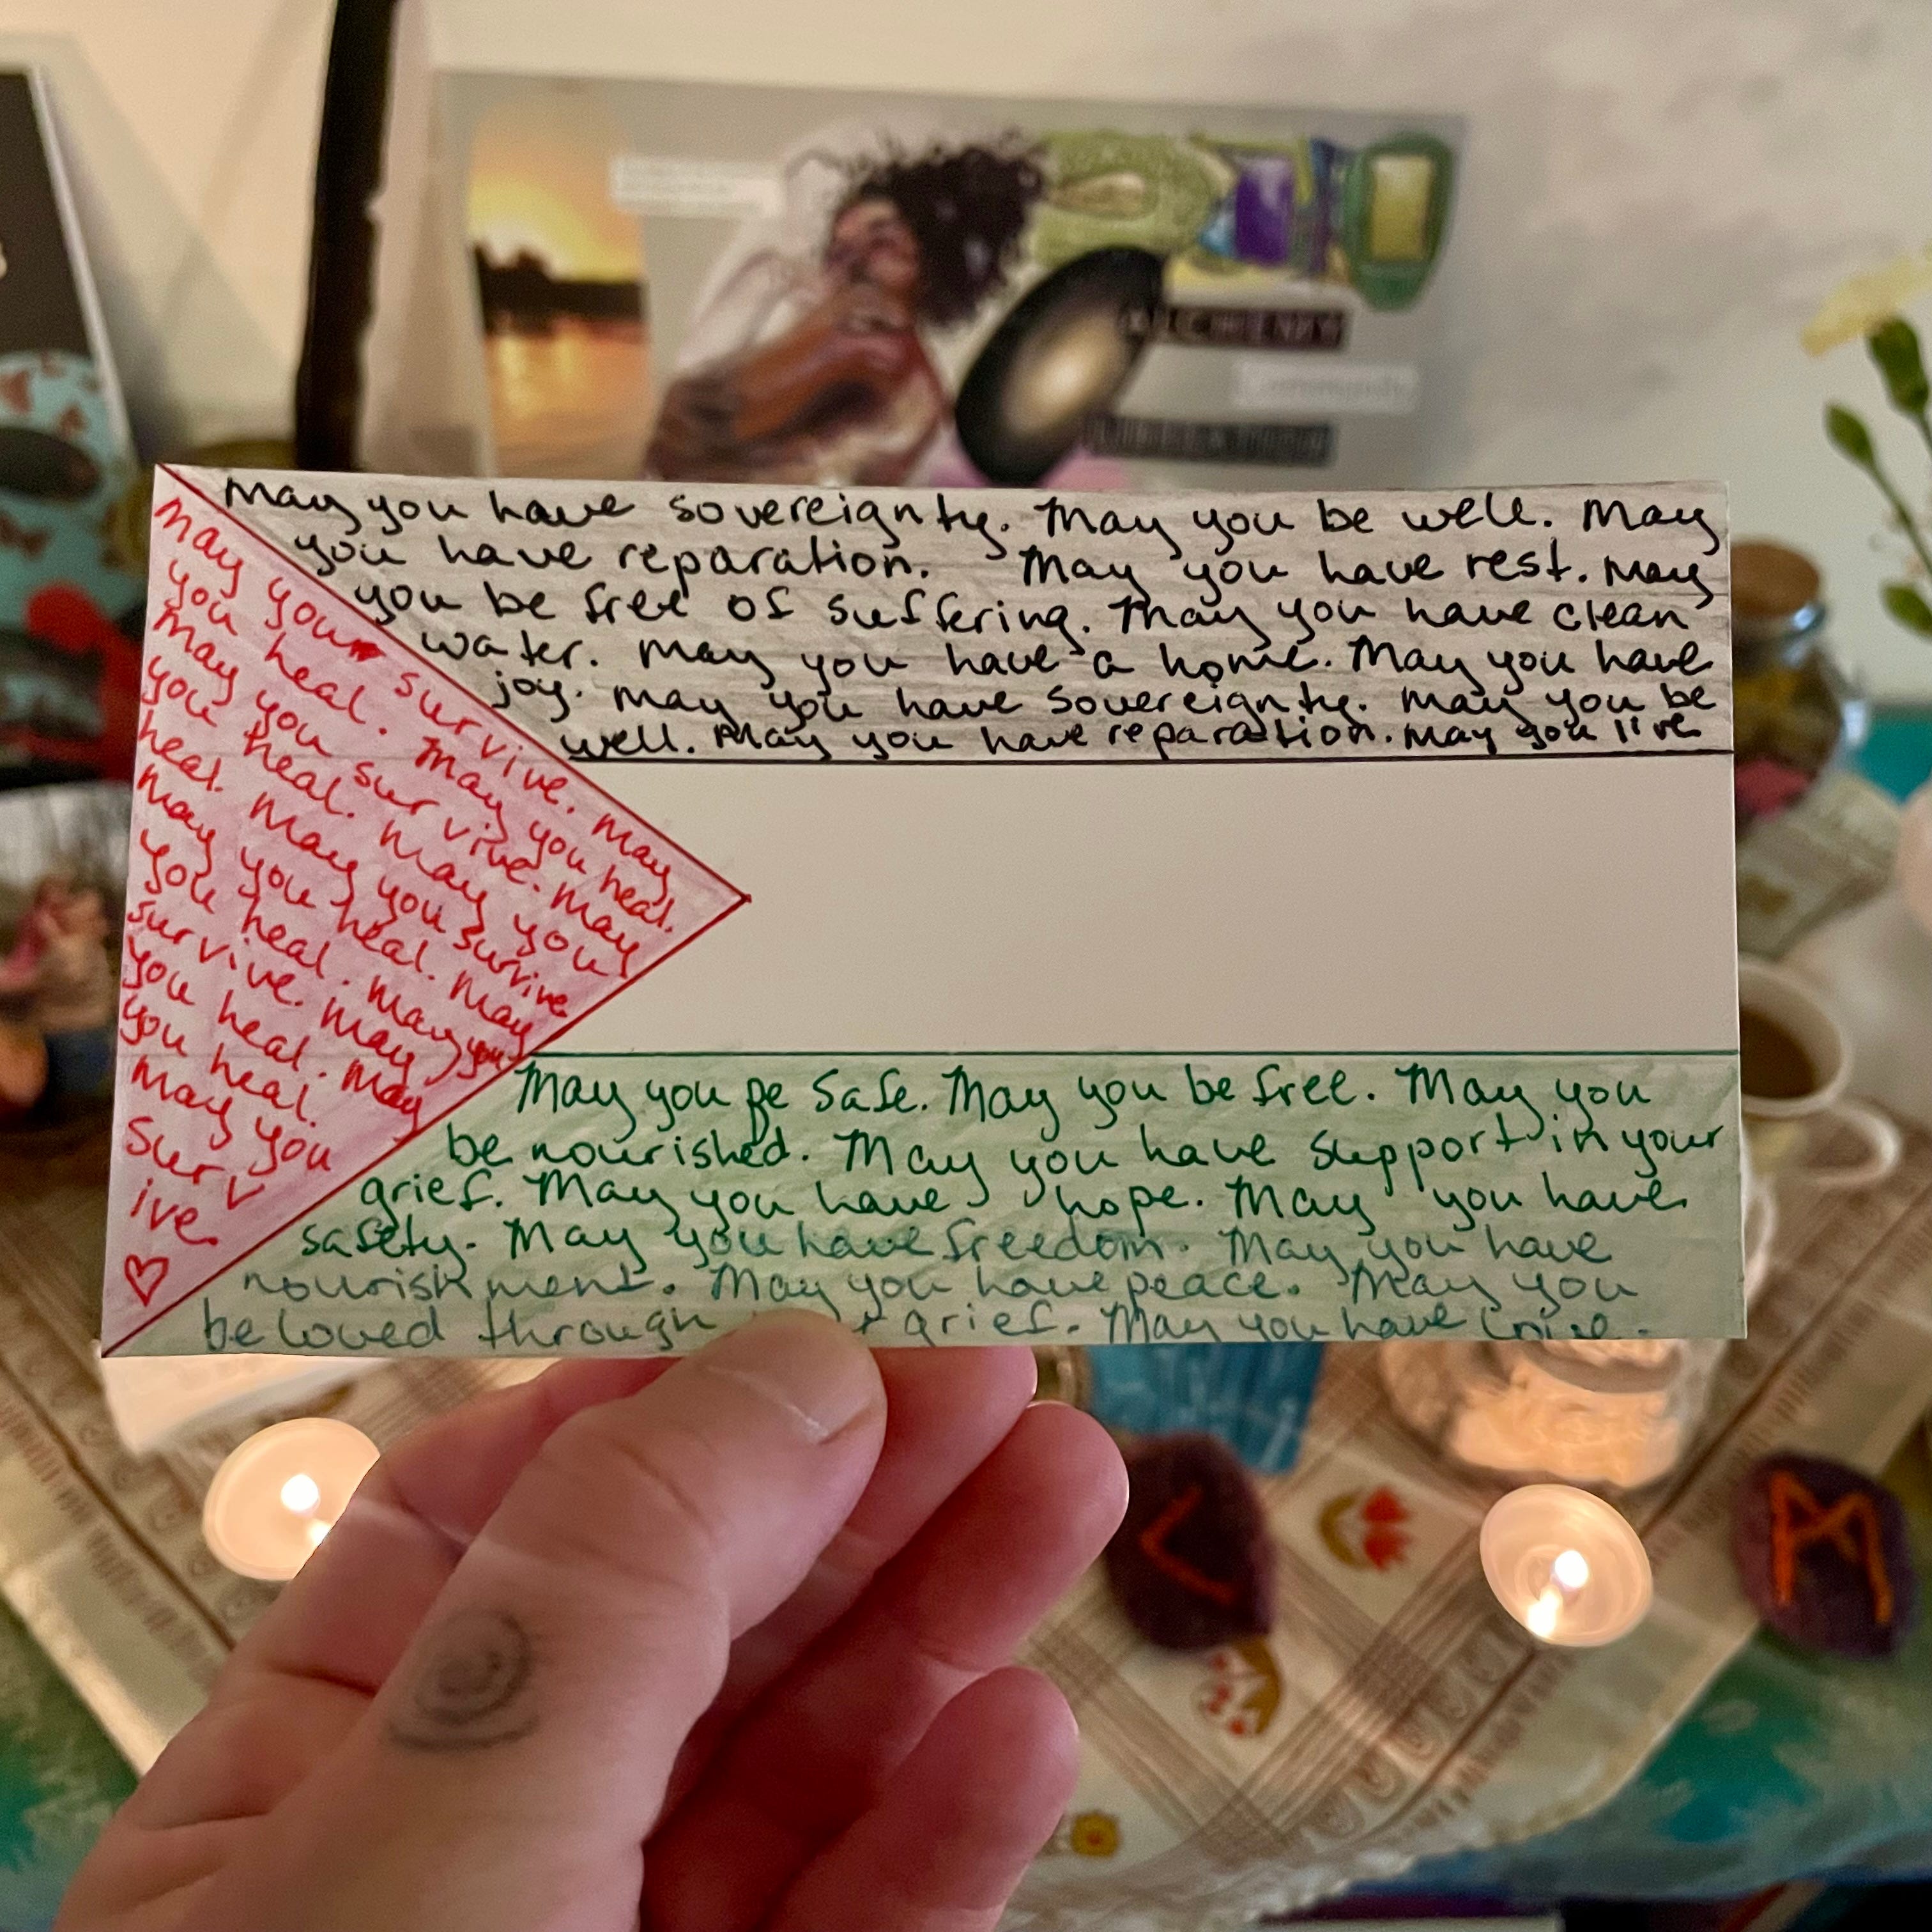 ALCHEMY
Community
LIBERATION
May you have sovereignty. May you be well. May
you have reparation. May you have rest. May
you be free of suffering. May you have clean
water. May you have a home. May you have
joy. May you have sovereignty. May you be
well. May you have reparation. May you live
May you survive. May
you heal. May you heal.
May you survive. May
you heal. May you
heal. May you survive
May you heal. May
you heal. May you
survive. May
you heal. May
you heal.
May you
surv
ive
May you be safe. May you be free. May you
be nourished. May you have support in your
grief. May you have hope. May you have
safety. May you have freedom. May you have
nourishment. May you have peace. May you
be loved through grief. May you have